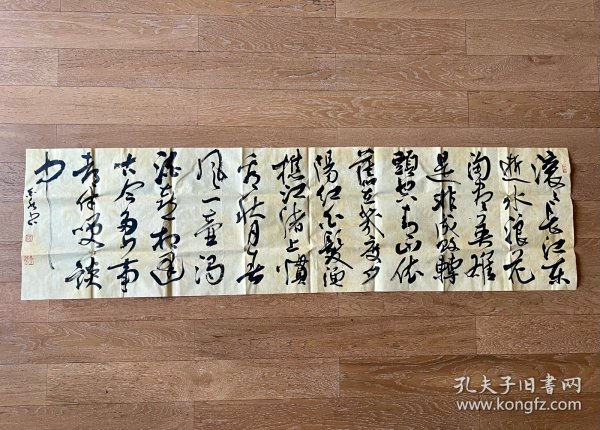 滚滚长江东
逝水浪花
淘尽英雄
是非成败转
头空青山依
旧在几度夕
阳红白发渔
樵江渚上惯
看秋月春
风一壶浊
酒喜相逢
古今多少事
都付笑谈
中
孔夫子旧书网
www.kongfz.com